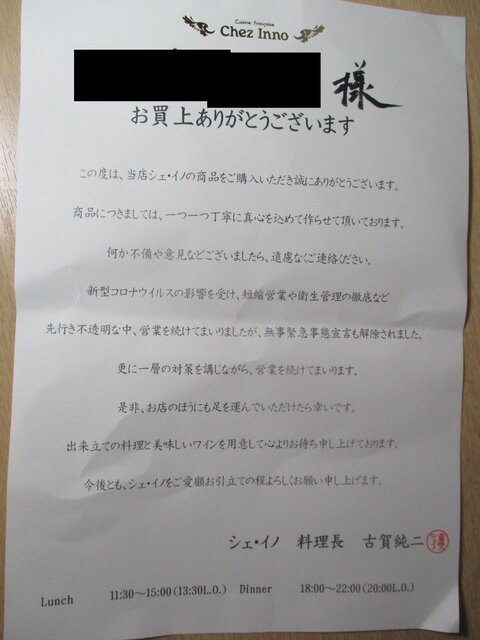 Cuisine Française
Chez Inno
様
お買上ありがとうございます
この度は、当店シェ・イノの商品をご購入いただき誠にありがとうございます。
商品につきましては、一つ一つ丁寧に真心を込めて作らせて頂いております。
何か不備や意見などございましたら、遠慮なくご連絡ください。
新型コロナウイルスの影響を受け、短縮営業や衛生管理の徹底など
先行き不透明な中、営業を続けてまいりましたが、無事緊急事態宣言も解除されました。
更に一層の対策を講じながら、営業を続けてまいります。
是非、お店のほうにも足を運んでいただけたら幸いです。
出来立ての料理と美味しいワインを用意して心よりお待ち申し上げております。
今後とも、シェ・イノをご愛顧お引立ての程よろしくお願い申し上げます。
シェ・イノ 料理長 古賀純二
Lunch 11:30～15:00(13:30L.O.) Dinner 18:00～22:00(20:00L.O.)